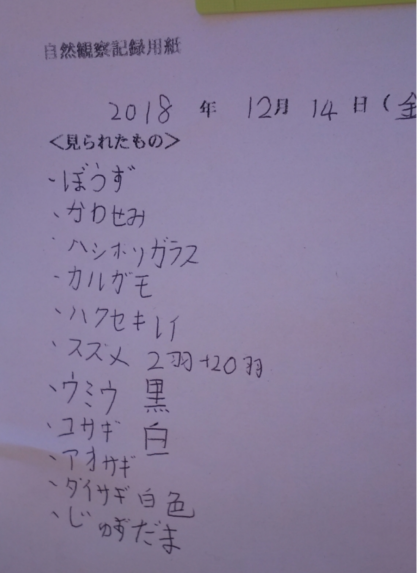 自然観察記録用紙
2018 年 12月 14 日 (金
<見られたもの>
・ぼうず
・かわせみ
・ハシホソガラス
・カルガモ
・ハクセキレイ
・スズメ 2羽+20羽
・ウミウ 黒
・コサギ 白
・アオサギ
・ダイサギ 白色
・じゅずだま